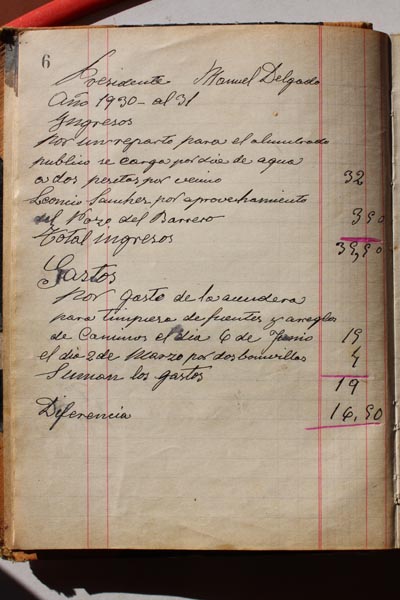 6
Presidente Manuel Delgado
Año 1930 - al 31
Yngresos
Por un reparto para el alumbrado
publico se carga por dia de agua
a dos pesetas por vecino 32
Leoncio Sanchez por aprovechamiento
del Pozo del Barrero 3 50
Total ingresos 35,50
Gastos
Por gasto de la acendera
para limpieza de fuentes y arreglos
de Caminos el dia 6 de Junio 15
el dia 2 de Marzo por dos bonvillas 4
Suman los gastos 19
Diferencia 16,50